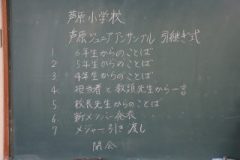 芦原小学校
芦原ジュニアアンサンブル 引継ぎ式
1 6年生からのことば
2 5年生からのことば
3 4年生からのことば
4 担当者と教頭先生から一言
5 校長先生からのことば
6 新メンバー発表
7 メジャー引き渡し
閉会